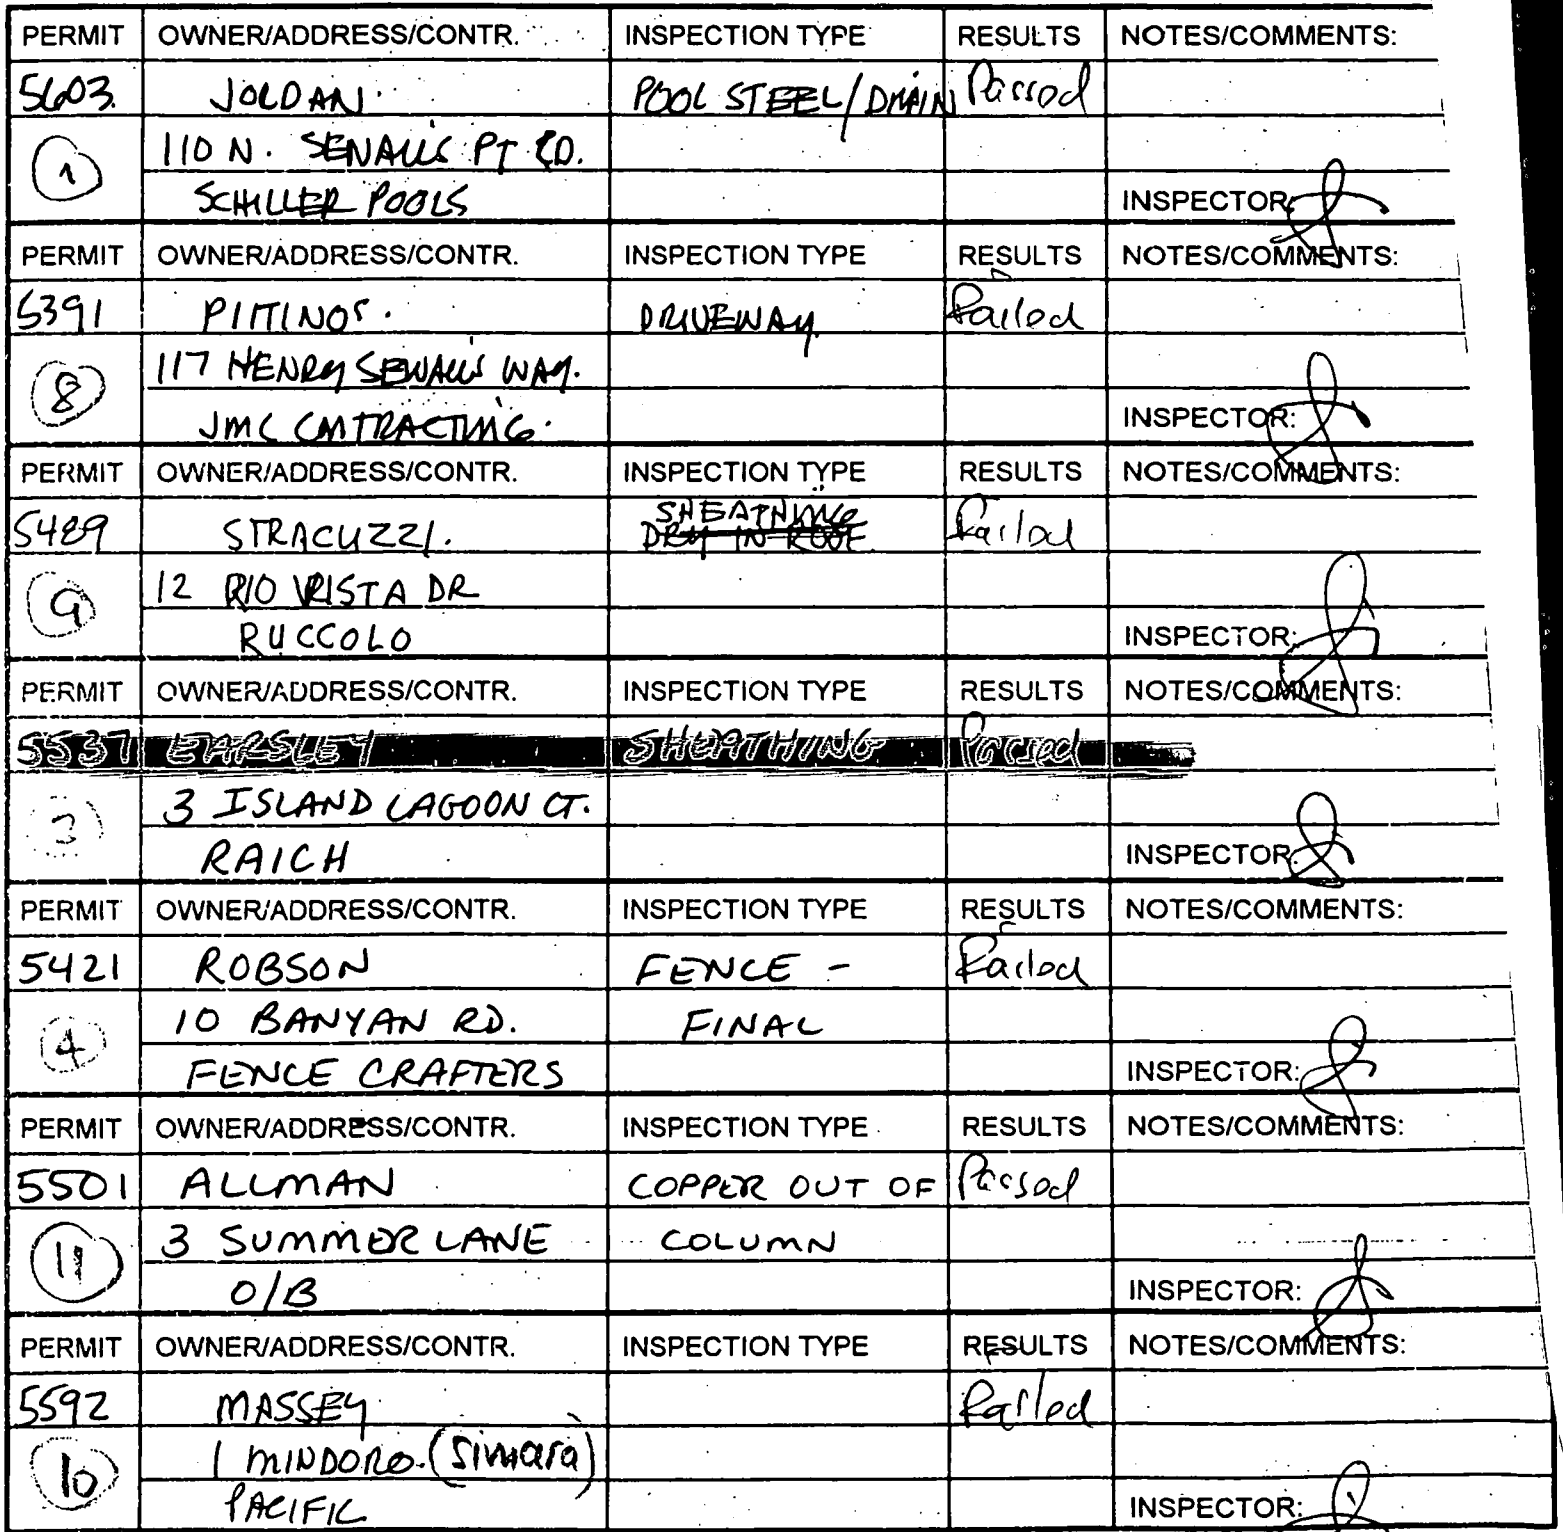 PERMIT OWNER/ADDRESS/CONTR. INSPECTION TYPE RESULTS NOTES/COMMENTS:
5603 JORDAN POOL STEEL/DRAIN Passed
1 110 N. SEWALL'S PT RD.
SCHILLER POOLS INSPECTOR:
PERMIT OWNER/ADDRESS/CONTR. INSPECTION TYPE RESULTS NOTES/COMMENTS:
5391 PITTINOS DRIVEWAY Failed
8 117 HENRY SEWALL'S WAY.
JMC CONTRACTING. INSPECTOR:
PERMIT OWNER/ADDRESS/CONTR. INSPECTION TYPE RESULTS NOTES/COMMENTS:
5489 STRACUZZI. SHEATHING DRY IN ROOF Failed
9 12 RIO VISTA DR
RUCCOLO INSPECTOR:
PERMIT OWNER/ADDRESS/CONTR. INSPECTION TYPE RESULTS NOTES/COMMENTS:
5537 EARSLEY SHEATHING Passed
3 3 ISLAND LAGOON CT.
RAICH INSPECTOR:
PERMIT OWNER/ADDRESS/CONTR. INSPECTION TYPE RESULTS NOTES/COMMENTS:
5421 ROBSON FENCE - Failed
4 10 BANYAN RD. FINAL
FENCE CRAFTERS INSPECTOR:
PERMIT OWNER/ADDRESS/CONTR. INSPECTION TYPE RESULTS NOTES/COMMENTS:
5501 ALLMAN COPPER OUT OF Passed
11 3 SUMMER LANE COLUMN
O/B INSPECTOR:
PERMIT OWNER/ADDRESS/CONTR. INSPECTION TYPE RESULTS NOTES/COMMENTS:
5592 MASSEY Failed
10 1 MINDORO. (Simara)
PACIFIC INSPECTOR: